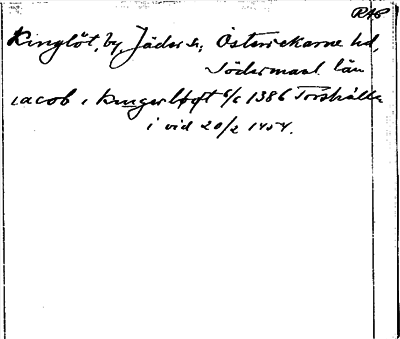 RAP
Kinglöt, by, Jäder s:, Österrekarne hd,
Södermanl. län
iacob i kingerløft 6/6 1386 Torshälla
i vid 20/2 1454.